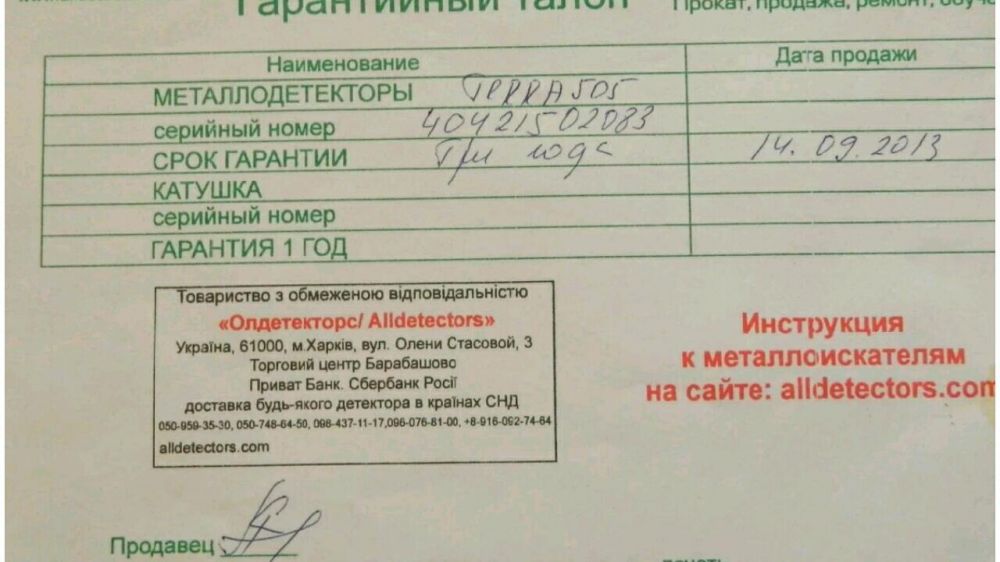 Гарантийный талон Прокат, продажа, ремонт, обуче
Наименование Дата продажи
МЕТАЛЛОДЕТЕКТОРЫ TERRA 505
серийный номер 40421502083
СРОК ГАРАНТИИ Три года 14.09.2013
КАТУШКА
серийный номер
ГАРАНТИЯ 1 ГОД
Товариство з обмеженою відповідальністю
«Олдетекторс/ Alldetectors»
Україна, 61000, м.Харків, вул. Олени Стасової, 3
Торговий центр Барабашово
Приват Банк. Сбербанк Росії
доставка будь-якого детектора в країнах СНД
050-959-35-30, 050-748-64-50, 098-437-11-17,096-076-81-00, +8-916-092-74-64
alldetectors.com
Инструкция
к металлоискателям
на сайте: alldetectors.com
Продавец